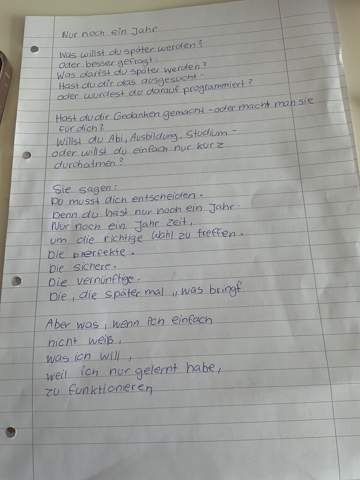 Nur noch ein Jahr
Was willst du später werden?
Oder besser gefragt:
Was darfst du später werden?
Hast du dir das ausgesucht -
oder wurdest du darauf programmiert?
Hast du dir Gedanken gemacht - oder macht man sie
für dich?
Willst du Abi, Ausbildung, Studium -
oder willst du einfach nur kurz
durchatmen?
Sie sagen:
Du musst dich entscheiden.
Denn du hast nur noch ein Jahr.
Nur noch ein Jahr Zeit,
um die richtige Wahl zu treffen.
Die perfekte.
Die sichere.
Die vernünftige.
Die, die später mal „was bringt"
Aber was, wenn ich einfach
nicht weiß,
was ich will,
weil ich nur gelernt habe,
zu funktionieren